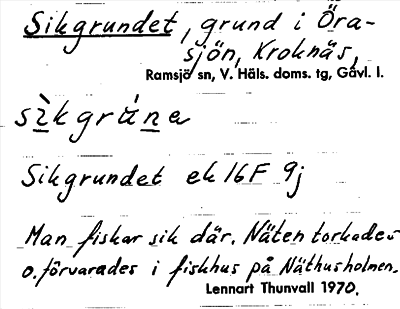 Sikgrundet, grund i Öra-
sjön, Kroknäs,
Ramsjö sn, V. Häls. doms. tg, Gävl. l.
sìkgrúna
Sikgrundet ek 16F 9j
Man fiskar sik där. Näten torkades
o. förvarades i fiskhus på Näthusholmen.
Lennart Thunvall 1970.